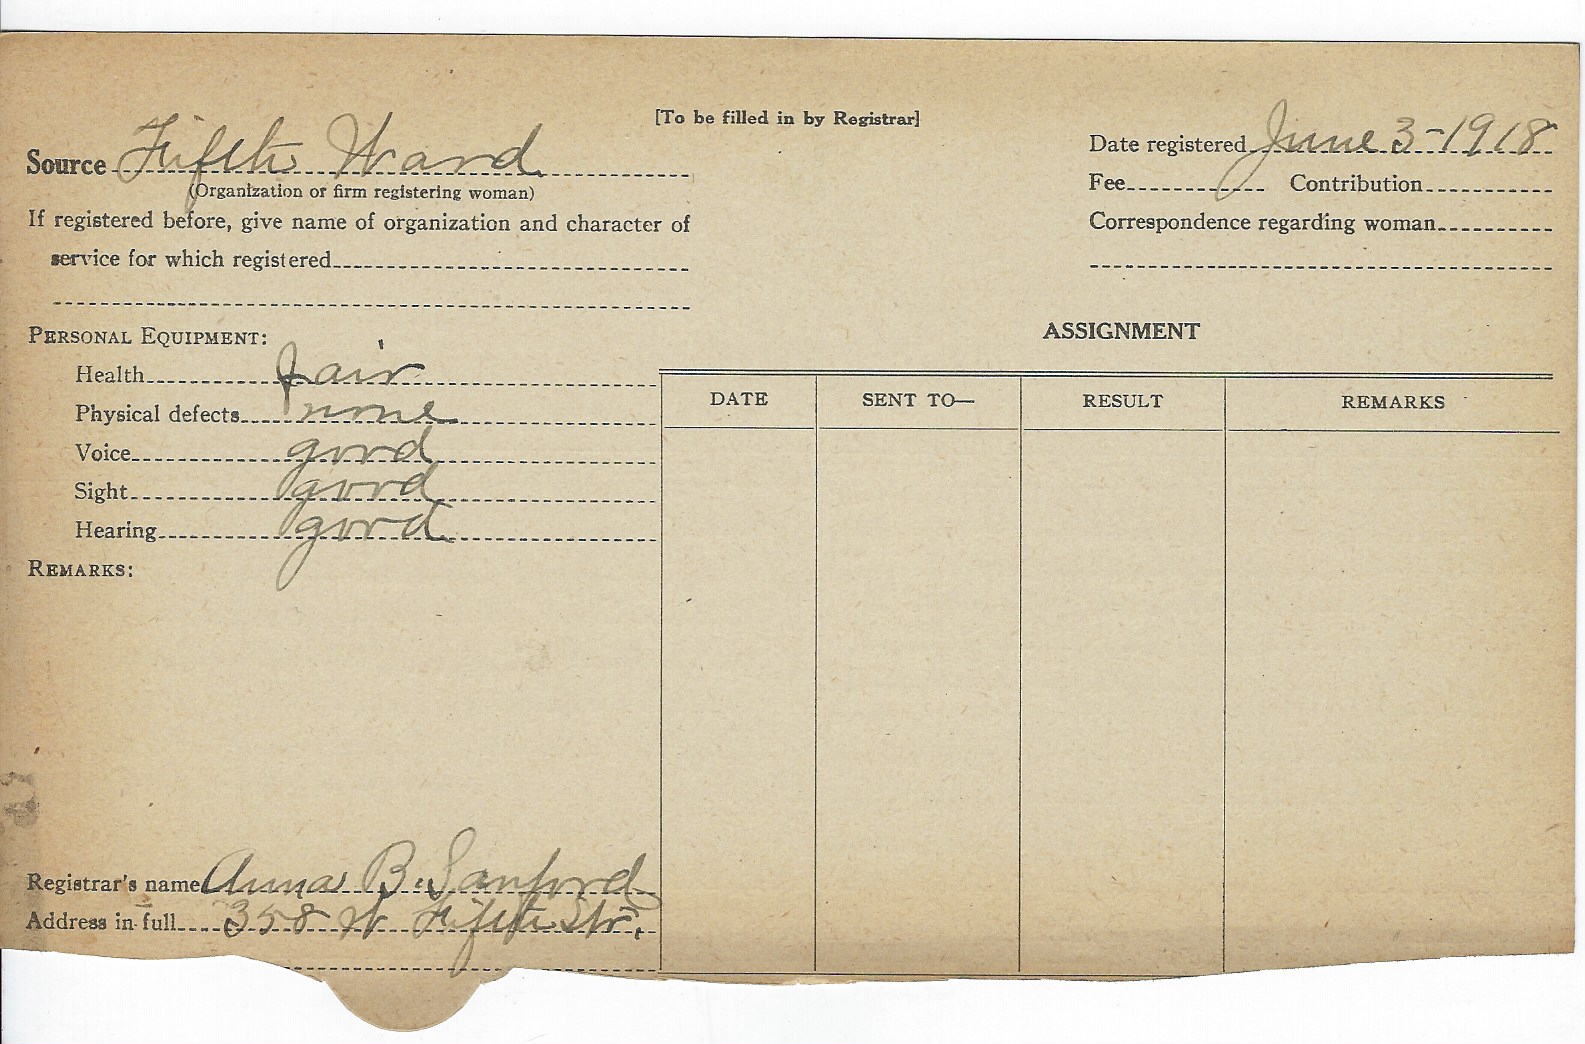 [To be filled in by Registrar]
Source Fifth Ward
(Organization or firm registering woman)
If registered before, give name of organization and character of
service for which registered
Date registered June 3-1918
Fee Contribution
Correspondence regarding woman
PERSONAL EQUIPMENT:
Health fair
Physical defects none
Voice good
Sight good
Hearing good
REMARKS:
ASSIGNMENT
DATE SENT TO— RESULT REMARKS
Registrar's name Anna B. Sanford
Address in full 358 W Fifth Str.